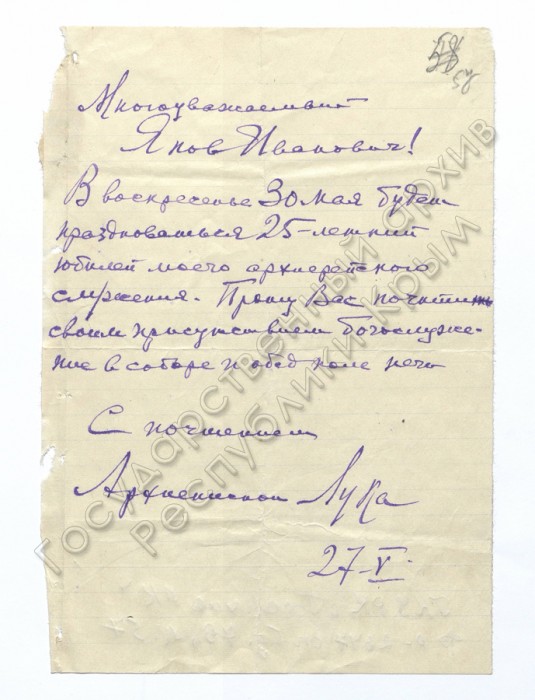 58
Многоуважаемый
Яков Иванович!
В воскресенье 30 мая будет
праздноваться 25-летний
юбилей моего архиерейского
служения. Прошу Вас почтить
своим присутствием богослуже-
ние в соборе и обед после него
С почтением
Архиепископ Лука
27-V.
Государственный архив
Республики Крым